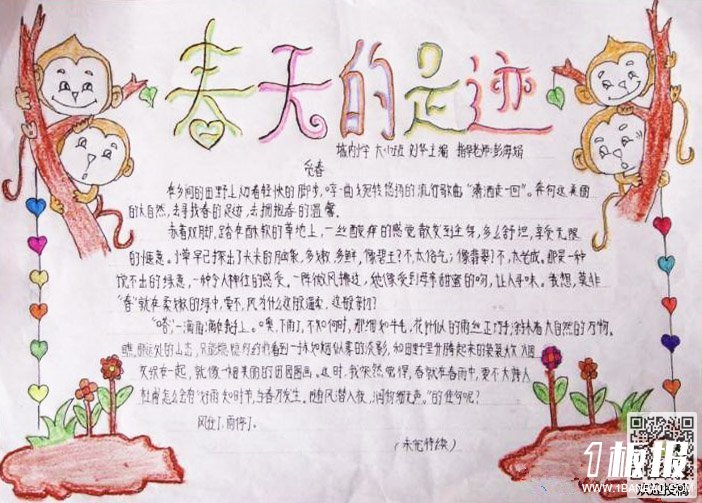 春天的足迹
城内小学 六(4)班 刘华主编 指导老师:彭海娟
觅春
在乡间的田野上,切着轻快的脚步,哼一曲宛转悠扬的流行歌曲“潇洒走一回”。奔向这美丽
的大自然,去寻找春的足迹,去拥抱春的温馨。
赤着双脚,踏在酥软的草地上,一丝酸痒的感觉散发到全身,多么舒坦,享受无限
的惬意。小草早已探出了尖尖的脑袋,多嫩,多鲜,像碧玉?不,太俗气;像翡翠?不,太老成。那是一种
说不出的绿意,一种令人神往的感受。一阵微风拂过,她像受到母亲甜蜜的吻,让人寻味。我想,莫非
“春”就在柔嫩的绿中,要不,风为什么这般温柔,这般亲切?
“嗒”一滴雨滴在脸上。噢,下雨了,不知何时,那细如牛毛,花针似的雨丝正巧手涂抹着大自然的万物。
瞧,那远处的山峦,只能隐隐约约看到一抹如烟似雾的淡影,和田野里升腾起来的袅袅炊烟
交织在一起,就像一幅美丽的田园图画。这时,我依然觉得,春就在春雨中,要不大诗人
杜甫怎么会有“好雨知时节,当春乃发生。随风潜入夜,润物细无声。”的佳句呢?
风止了,雨停了。
(未完待续)
1板报
WWW.1BANBAO.COM
欢迎投稿